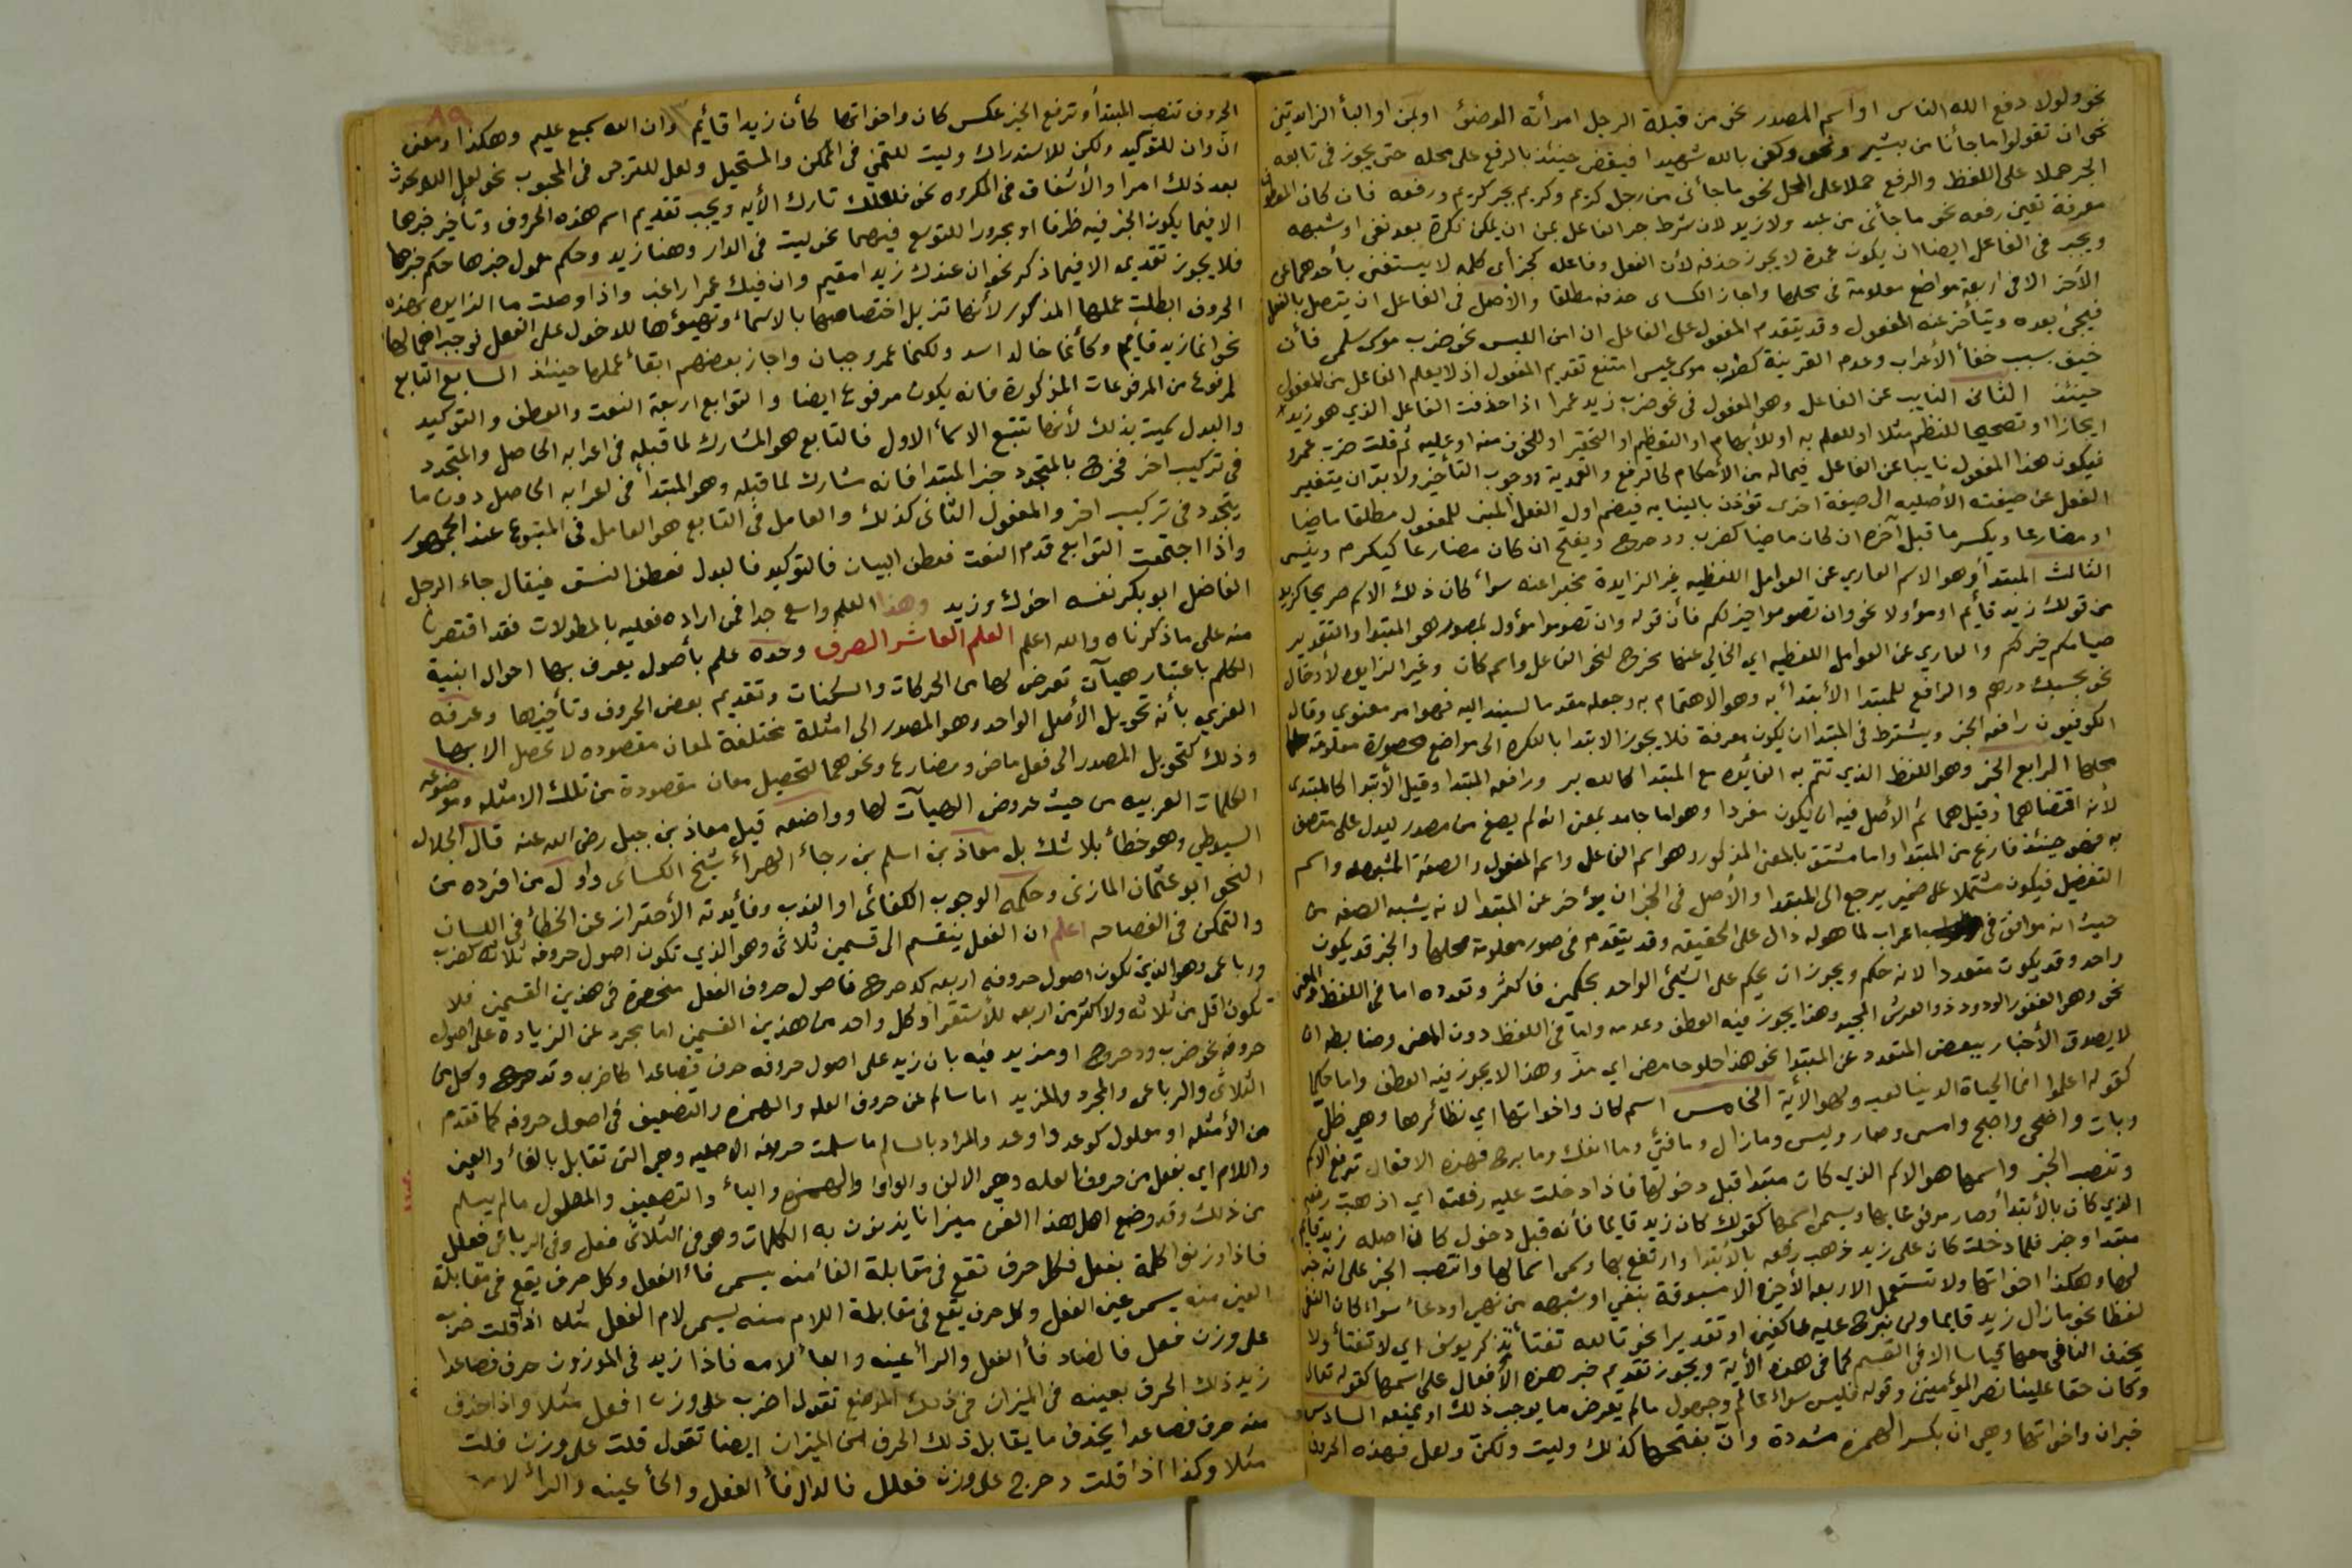 نحو ولولا دفع الله الناس او اسم المصدر نحو من قبلة الرجل امرأته الوضوء او بمن او البأ الزائدتين
نحو ان تقولوا ما جأنا من بشير ونحو وكفى بالله شهيدا فيقضى حينئذ بالرفع على محله حتى يجوز في تابعه
الجر حملا على اللفظ والرفع حملا على المحل نحو ما جأنى من رجل كريم وكريم بجر كريم ورفعه فان كان المعطوف
معرفة تعين رفعه نحو ما جأنى من عبد ولا زيد لان شرط جر الفاعل بمن ان يكون نكرة بعد نفى او شبهه
ويجب في الفاعل ايضا ان يكون عمدة لا يجوز حذفه لأن الفعل وفاعله كجزأى كلمه لا يستغنى بأحدهما عن
الأخر الا في اربعة مواضع معلومة في محلها واجاز الكسائى حذفه مطلقا والأصل في الفاعل ان يتصل بالفعل
فيجئ بعده ويتأخر عنه المفعول وقد يتقدم المفعول على الفاعل ان امن اللبس نحو ضرب موسى سلمى فأن
خيف بسبب خفأ الأعراب وعدم القرينة كضرب موسى عيسى امتنع تقديم المفعول اذ لا يعلم الفاعل من المفعول
حينئذ الثانى النايب عن الفاعل وهو المفعول في نحو ضرب زيد عمرا اذا حذفت الفاعل الذي هو زيد
ايجازا او تصحيحا للنظم مثلا او للعلم به او للأبهام او التعظيم او التحقير او للخوف منه او عليه ثم قلت ضرب عمرو
فيكون هذا المفعول نايبا عن الفاعل فيماله من الأحكام كالرفع والعمدية ووجوب التأخير ولا بد ان يتغير
الفعل عن صيغته الأصليه الى صيغة اخرى تؤذن بالنيابه فيضم اول الفعل المبنى للمفعول مطلقا ماضيا
او مضارعا ويكسر ما قبل آخره ان كان ماضيا كضرب ودحرج ويفتح ان كان مضارعا كيكرم
الثالث المبتدأ وهو الاسم العاري عن العوامل اللفظيه غير الزايدة مخبرا عنه سوأ كان ذلك الاسم صريحا كزيد
من قولك زيد قأيم او مؤولا نحو وان تصوموا خير لكم فأن قوله وان تصوموا مؤول بمصدر هو المبتدا والتقدير
صيامكم خير لكم والعاري عن العوامل اللفظيه اي الخالي عنها مخرج لنحو الفاعل واسم كان وغير الزايده لأدخال
نحو بحسبك درهم والرافع للمبتدا الأبتدأ به وهو الاهتمام به وجعله مقدما ليسند اليه فهو امر معنوي وقال
الكوفيون رافعه الخبر ويشترط في المبتدا ان يكون معرفة فلا يجوز الابتدا بالنكره الى مواضع محصورة معلومة
محلها الرابع الخبر وهو اللفظ الذي تتم به الفائده مع المبتدا كالله بر ورافعه المبتدا وقيل الأبتدا كالمبتدى
لأنه اقتضاهما وقيل هما ثم الأصل فيه ان يكون مفردا وهو اما جامد بمعنى انه لم يصغ من مصدر ليدل على متصف
به فهو حينئذ فارغ من المبتدا واما مشتق بالمعنى المذكور وهو اسم الفاعل واسم المفعول والصفة المشبهه واسم
التفضيل فيكون مشتملا على ضمير يرجع الى المبتدا والأصل في الخبر ان يؤخر عن المبتدا لانه يشبه الصفه من
حيث انه موافق في اعراب لما هو له دال على الحقيقه وقد يتقدم في صور معلومة محلها والخبر قد يكون
واحد وقد يكون متعددا لانه حكم ويجوز ان يحكم على الشئ الواحد بحكمين فأكثر وتعدده اما في اللفظ والمعنى
نحو وهو الغفور الودود ذو العرش المجيد وهذا يجوز فيه العطف وعدمه واما في اللفظ دون المعنى وضابطه ان
لا يصدق الأخبار ببعض المتعدد عن المبتدا نحو هذا حلو حامض اي مز وهذا لا يجوز فيه العطف واما حكما
كقوله اعلموا انما الحياة الدنيا لعب ولهو الأية الخامس اسم كان واخواتها اي نظائرها وهي ظل
وبات واضحى واصبح وامسى وصار وليس ومازال وما فتئ وما انفك وما برح فهذه الافعال ترفع الاسم
وتنصب الخبر واسمها هو الاسم الذي كان مبتدا قبل دخولها فاذا دخلت عليه رفعته اي اذهبت رفعه
الذي كان بالأبتدأ وصار مرفوعا بها ويسمى اسمها كقولك كان زيد قايما فأنه قبل دخول كان اصله زيد قايم
مبتدا وخبر فلما دخلت كان على زيد ذهب رفعه بالأبتدا وارتفع بها وسمى اسما لها وانتصب الخبر على انه خبر
لها وهكذا اخواتها ولا تستعمل الاربعه الأخيره الا مسبوقة بنفي او شبهه من نهي او دعأ سواء كان النفى
لفظا نحو مازال زيد قايما ولن نبرح عليه عاكفين او تقديرا نحو تالله تفتأ تذكر يوسف اي لا تفتأ ولا
يحذف النافى معها قياسا الا في القسم كما في هذه الأية ويجوز تقديم خبر هذه الأفعال على اسمها كقوله تعالى
وكان حقا علينا نصر المؤمنين وقوله فليس سواء عالم وجهول مالم يعرض ما يوجب ذلك او يمنعه السادس
خبر ان واخواتها وهي ان بكسر الهمزه مشددة وأن بفتحها كذلك وليت ولكن ولعل فهذه الحروف
٨٩
الحروف تنصب المبتدأ وترفع الخبر عكس كان واخواتها كأن زيدا قأيم وان الله سميع عليم وهكذا ومعنى
ان وان للتوكيد ولكن للاستدراك وليت للتمني في الممكن والمستحيل ولعل للترجى في المحبوب نحو لعل الله يحدث
بعد ذلك امرا والأشفاق في المكروه نحو فلعلك تارك الأيه ويجب تقديم اسم هذه الحروف وتأخير خبرها
الا فيما يكون الخبر فيه ظرفا او مجرورا للتوسع فيهما نحو ليت في الدار وهنا زيد وحكم معمول خبرها حكم خبرها
فلا يجوز تقديمه الا فيما ذكر نحو ان عندك زيدا مقيم وان فيك عمرا راغب واذا وصلت ما الزايده بهذه
الحروف ابطلت عملها المذكور لأنها تزيل اختصاصها بالاسماء وتهيؤها للدخول على الفعل فوجب اهمالها
نحو انما زيد قأيم وكأنما خالد اسد ولكنما عمرو جبان واجاز بعضهم ابقأ عملها حينئذ السابع التابع
لمرفوع من المرفوعات المذكورة فانه يكون مرفوعا ايضا والتوابع اربعة النعت والعطف والتوكيد
والبدل سميت بذلك لأنها تتبع الاسمأ الاول فالتابع هو المشارك لما قبله في اعرابه الحاصل والمتجدد
في تركيب اخر فخرج بالمتجدد خبر المبتدا فانه مشارك لما قبله وهو المبتدأ في اعرابه الحاصل دون ما
يتجدد في تركيب اخر والمفعول الثانى كذلك والعامل في التابع هو العامل في المتبوع عند الجمهور
واذا اجتمعت التوابع قدم النعت فعطف البيان فالتوكيد فالبدل فعطف النسق فيقال جاء الرجل
الفاضل ابو بكر نفسه اخوك وزيد وهذا العلم واسع جدا فمن اراده فعليه بالمطولات فقد اقتصرنا
منه على ما ذكرناه والله اعلم العلم العاشر الصرف وحده علم بأصول يعرف بها احوال ابنية
الكلم باعتبار هيآت تعرض لها من الحركات والسكنات وتقديم بعض الحروف وتأخيرها وعرفه
العزي بأنه تحويل الأصل الواحد وهو المصدر الى امثلة مختلفة لمعان مقصوده لا تحصل الا بها
وذلك كتحويل المصدر الى فعل ماض ومضارع ونحوهما لتحصيل معان مقصودة من تلك الامثله وموضوعه
الكلمات العربيه من حيث عروض الهيآت لها وواضعه قيل معاذ بن جبل رضى الله عنه قال الجلال
السيوطي وهو خطأ بلا شك بل معاذ بن اسلم بن رجاء الهرأ شيخ الكسائى واول من افرده من
النحو ابو عثمان المازنى وحكمه الوجوب الكفائى او الندب وفأيدته الأحتراز عن الخطأ في اللسان
والتمكن في الفصاحه اعلم ان الفعل ينقسم الى قسمين ثلاثى وهو الذي تكون اصول حروفه ثلاثه كضرب
ورباعى وهو الذي تكون اصول حروفه اربعه كدحرج فاصول حروف الفعل منحصرة في هذين القسمين فلا
تكون اقل من ثلاثه ولا اكثر من اربعه للأستقرأ وكل واحد من هذين القسمين اما مجرد عن الزيادة على اصول
حروفه نحو ضرب ودحرج او مزيد فيه بان زيد على اصول حروفه حرف فصاعدا كاضرب وتدحرج وكل من
الثلاثى والرباعى والمجرد والمزيد اما سالم عن حروف العله والهمزه والتضعيف في اصول حروفه كما تقدم
من الأمثله او معلول كوعد واوعد والمراد بالسالم ما سلمت حروفه الاصليه وهي التى تقابل بالفأ والعين
واللام اي بفعل من حروف العله وهي الالف والواو والهمزه والياء والتضعيف والمعلول مالم يسلم
من ذلك وقد وضع اهل هذا الفن ميزانا يزنون به الكلمات وهو في الثلاثى فعل وفي الرباعى فعلل
فاذا وزنوا كلمة بفعل فكل حرف تقع في مقابلة الفأ منه يسمى فأ الفعل وكل حرف يقع في مقابلة
العين منه يسمى عين الفعل وكل حرف يقع في مقابلة اللام منه يسمى لام الفعل مثلا اذا قلت ضرب
على وزن فعل فالضاد فأ الفعل والرأ عينه والبأ لامه فاذا زيد في الموزون حرف فصاعدا
زيد ذلك الحرف بعينه في الميزان في ذلك الموضع تقول اضرب على وزن افعل مثلا واذا حذف
منه حرف فصاعدا يحذف ما يقابل ذلك الحرف من الميزان ايضا تقول قلت على وزن فلت
مثلا وكذا اذا قلت دحرج على وزن فعلل فالدال فأ الفعل والحأ عينه والرأ لامه